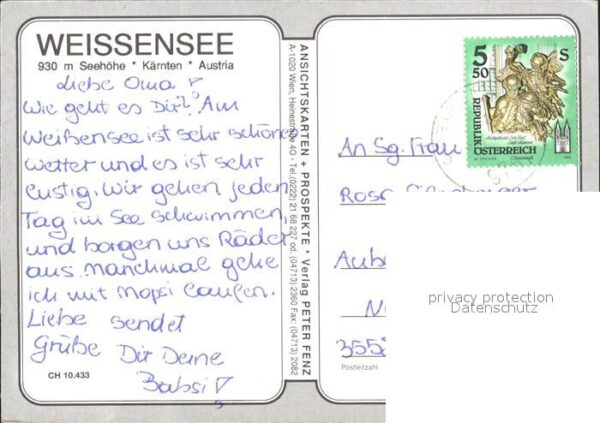 WEISSENSEE
930 m Seehöhe * Kärnten * Austria
Liebe Oma!
Wie geht es Dir? Am
Weißensee ist sehr schönes
Wetter und es ist sehr
lustig. Wir gehen jeden
Tag im See schwimmen,
und borgen uns Räder
aus. Manchmal gehe
ich mit Mopsi laufen.
Liebe sendet
Grüße Dir Deine
Babsi
CH 10.433
ANSICHTSKARTEN + PROSPEKTE * Verlag PETER FENZ
A-1020 Wien, Heinestraße 40 - Tel. (0222) 21 68 227 od. (04713) 2360 Fax: (04713) 2082
5 50 S
REPUBLIK
ÖSTERREICH
An Sg. Frau
Rosa
355
Postleitzahl
privacy protection
Datenschutz